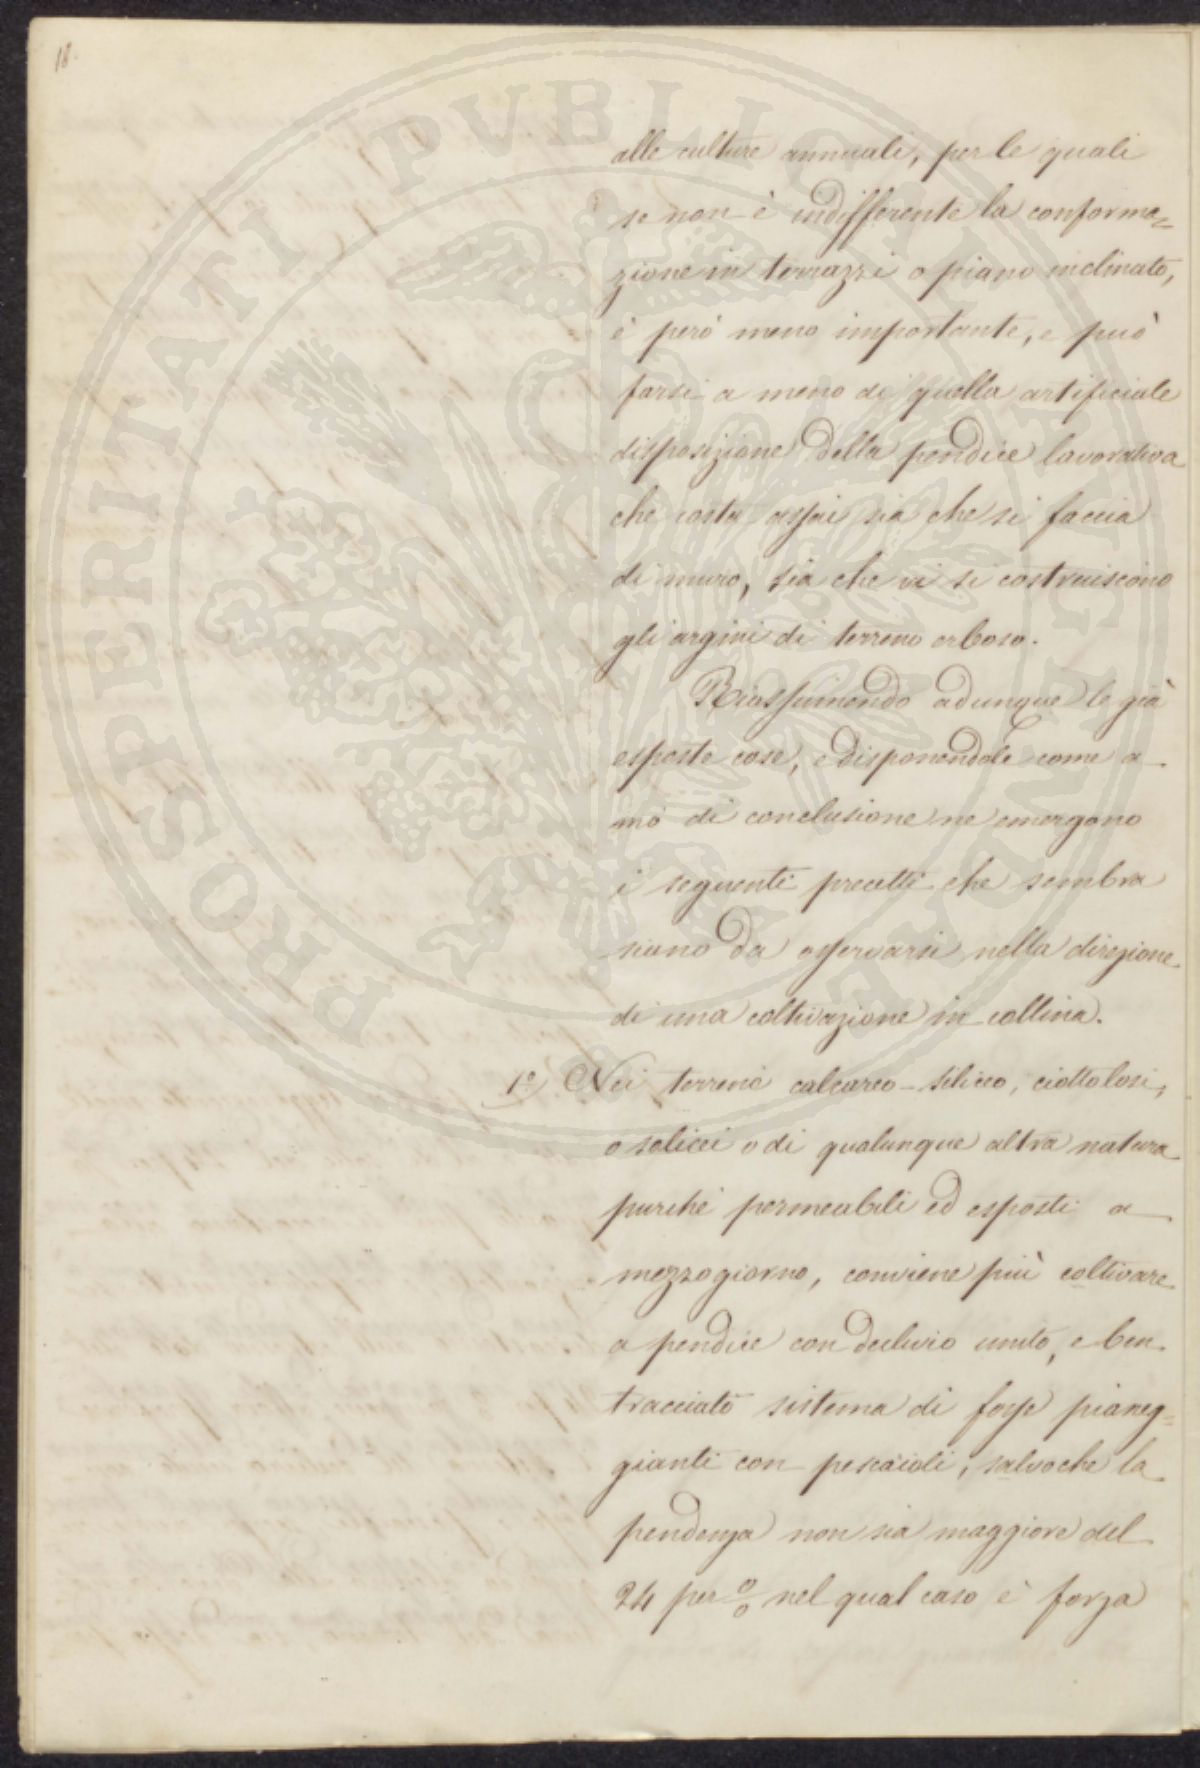 18.
alle culture annuali, per le quali
se non è indifferente la conforma=
zione in terrazzi o piano inclinato,
è però meno importante, e può
farsi a meno di quella artificiale
disposizione della pendice lavorativa
che costa assai sia che si faccia
di muro, sia che vi si costruiscono
gli argini di terreno erboso.
Riassumendo adunque le già
esposte cose, e disponendole come a
mò di conclusione ne emergono
i seguenti precetti che sembra
siano da osservarsi nella direzione
di una coltivazione in collina.
1º Nei terreni calcareo-siliceo, ciottolosi,
o selicei o di qualunque altra natura
purchè permeabili ed esposti a
mezzogiorno, conviene più coltivare
a pendice con declivio unito, e ben
tracciato sistema di fosse pianeg=
gianti con pescaioli, salvoche la
pendenza non sia maggiore del
24 per % nel qual caso è forza
PROSPERITATI PVBLICAE AVGENDAE